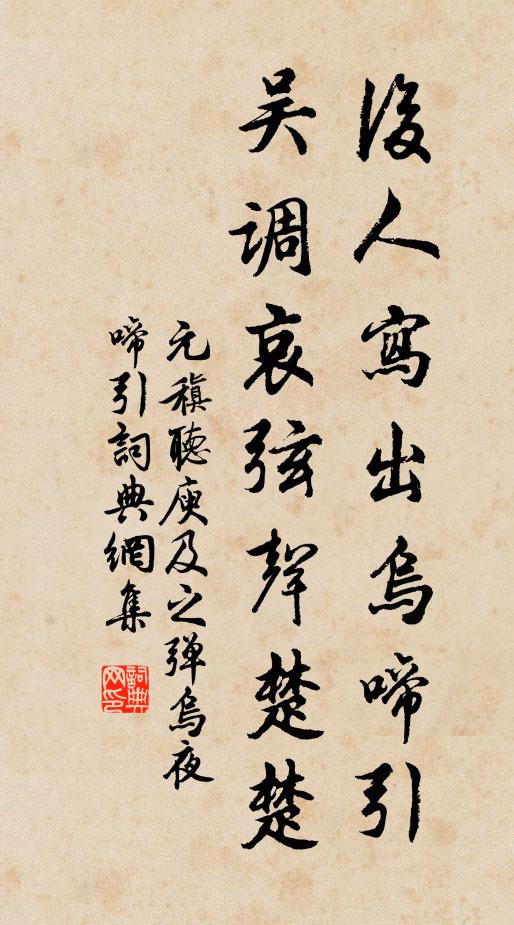 後人寫出烏啼引
吳調哀弦聲楚楚
元稹聽庾及之彈烏夜
啼引詞典網集
詞典
网印